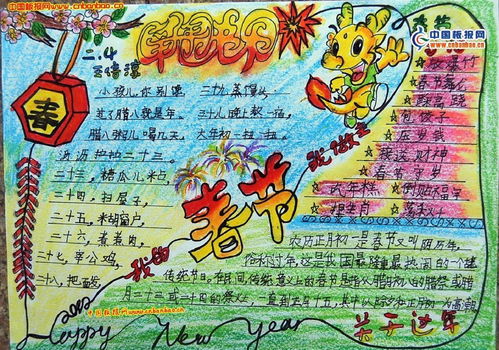 中国板报网
www.cnbanbao.cn
二.4
春
中国板报网
www.cnbanbao.cn
小孩儿你别馋
过了腊八就是年。
腊八粥儿喝几天,
沥沥拉拉二十三。
二十三,糖瓜儿粘
二十四,扫屋子
二十五,
二十六,煮煮肉
二十七,宰公鸡,
二十八,把面
三十儿晚上熬一宿,
大年初一扭一扭。
放爆竹
☆春节
☆踩高跷
☆包饺子
☆压岁钱
☆接送财神
☆春节守岁
☆吃年糕
☆倒贴福字
☆
☆
我的
春节
我做主
农历正月初一是春节又叫阴历年,
俗称过年,这是我国最隆重最热闹的一个
传统节日。在民间,传统意义上的春节是指从腊月初八的腊祭或腊
月二十三或二十四的祭灶,一直到正月十五,其中以除夕和正月初一为高潮
2012
Happy New Year
中国板报网www.cnbanbao.cn
关于过年